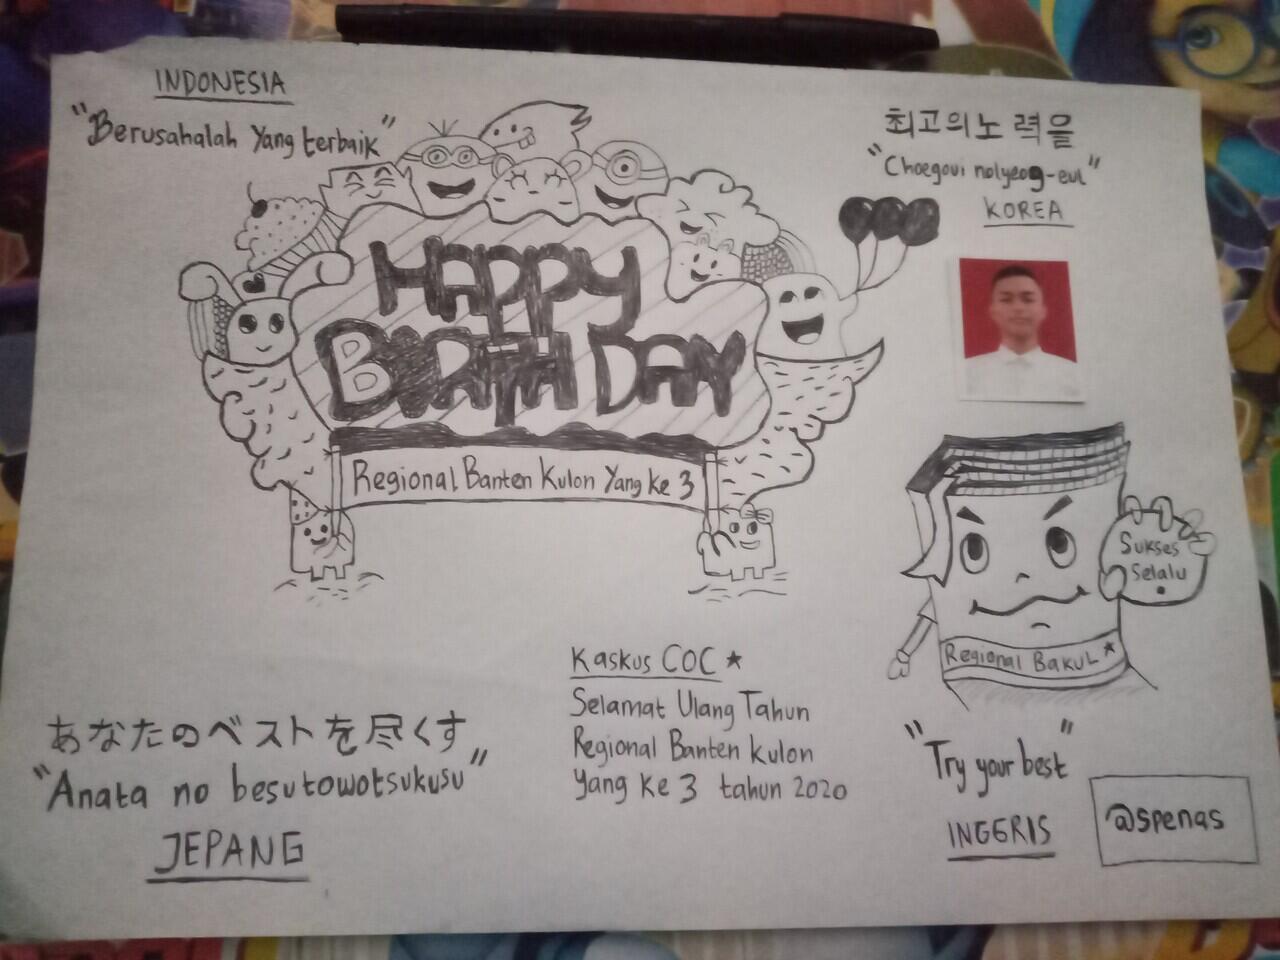 INDONESIA
"Berusahalah Yang terbaik"
최고의 노력을
"Choegoui nolyeog-eul"
KOREA
HAPPY
BIRTH DAY
Regional Banten Kulon Yang Ke 3
Sukses
Selalu
Regional BakuL ★
Kaskus COC ★
Selamat Ulang Tahun
Regional Banten Kulon
Yang Ke 3 tahun 2020
あなたのベストを尽くす
"Anata no besutowotsukusu"
JEPANG
"Try your best"
INGGRIS
@spenas